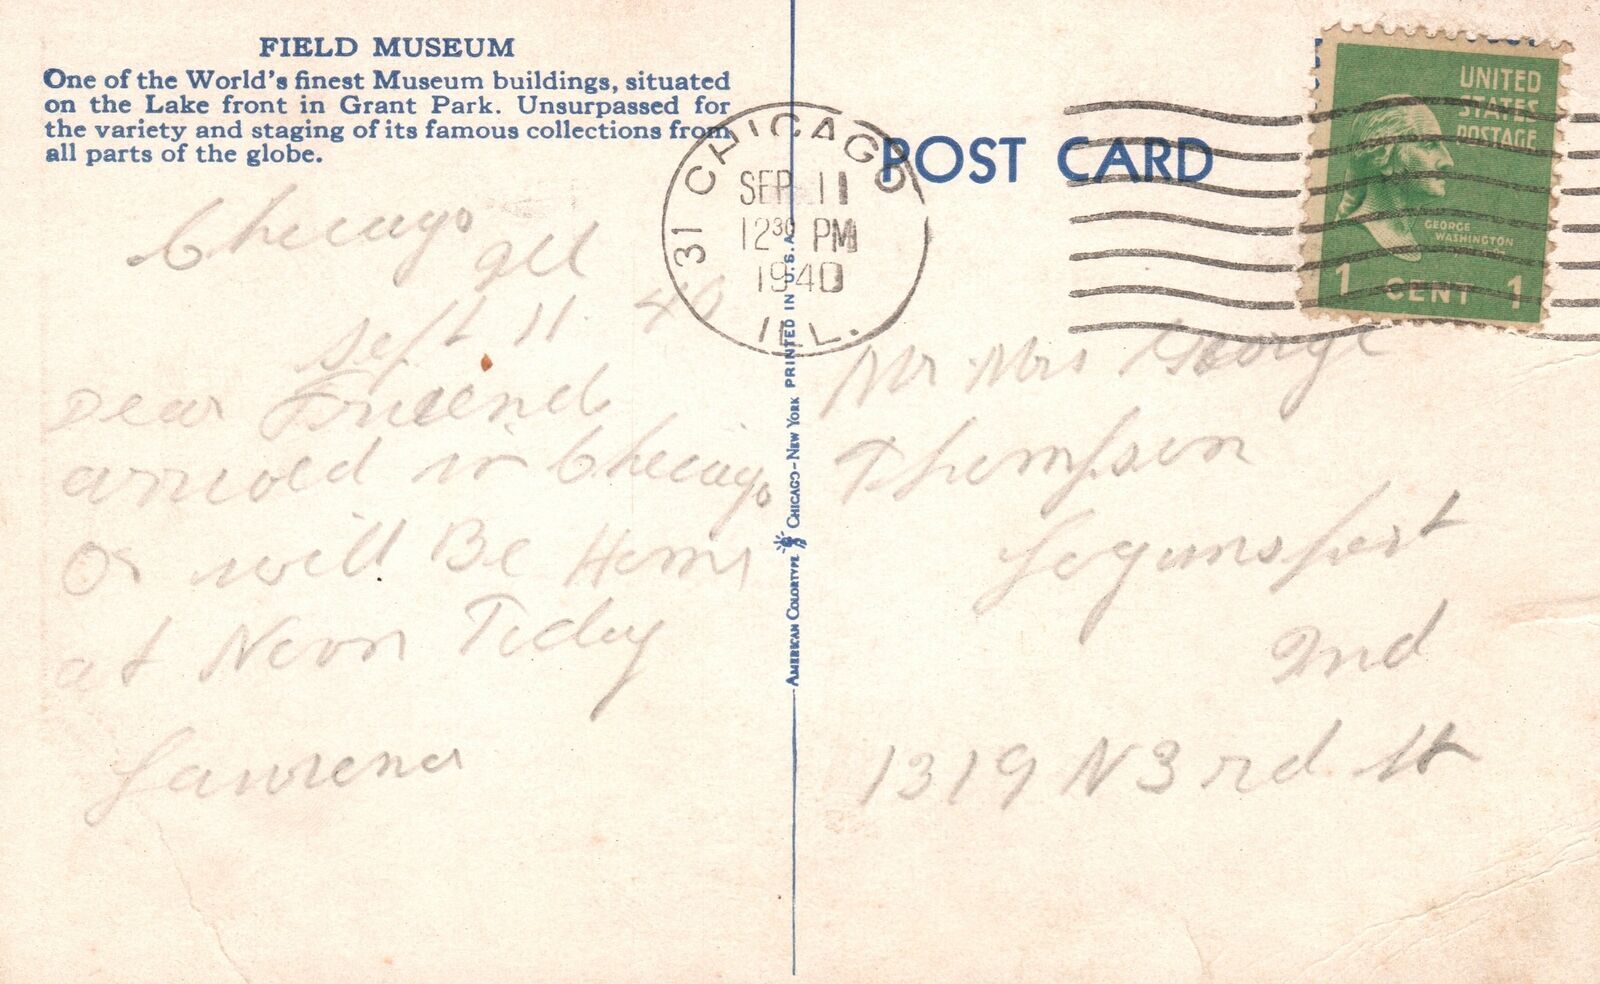 FIELD MUSEUM
One of the World's finest Museum buildings, situated
on the Lake front in Grant Park. Unsurpassed for
the variety and staging of its famous collections from
all parts of the globe.
Chicago
Ill
Sept 11 40
Dear Friend
arrived in Chicago
will Be Home
at Noon
Lawrence
AMERICAN COLORTYPE CHICAGO-NEW YORK PRINTED IN U.S.A.
31 CHICAGO
SEP 11
12 30 PM
1940
ILL.
POST CARD
UNITED
STATES
POSTAGE
GEORGE
WASHINGTON
1 CENT 1
Mr Mrs George
Thompson
Logansport
Ind
1319 N 3rd St